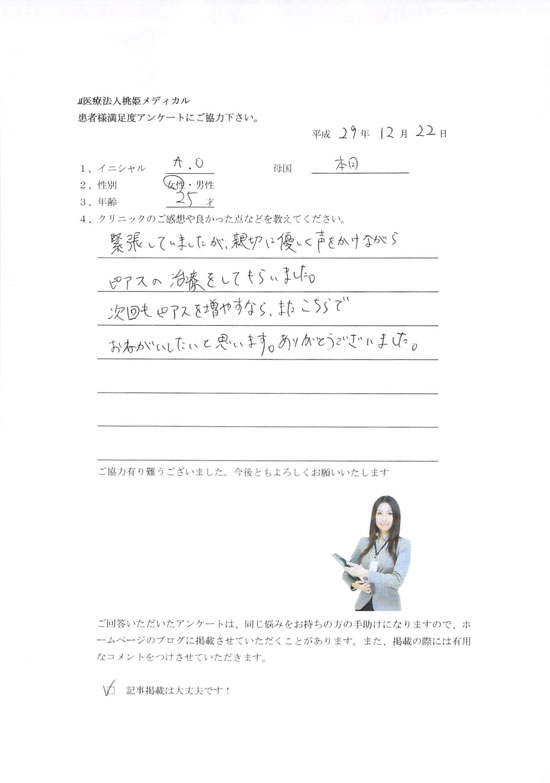 医療法人桃姫メディカル
患者様満足度アンケートにご協力下さい。
平成 29 年 12 月 22 日
1、イニシャル A.O 母国 本日
2、性別 女性・男性
3、年齢 25 才
4、クリニックのご感想や良かった点などを教えてください。
緊張していましたが、親切に優しく声をかけながら
ピアスの治療をしてもらいました。
次回もピアスを増やすなら、またこちらで
おねがいしたいと思います。ありがとうございました。
ご協力有り難うございました。今後ともよろしくお願いいたします
ご回答いただいたアンケートは、同じ悩みをお持ちの方の手助けになりますので、ホ
ームページのブログに掲載させていただくことがあります。また、掲載の際には有用
なコメントをつけさせていただきます。
記事掲載は大丈夫です！